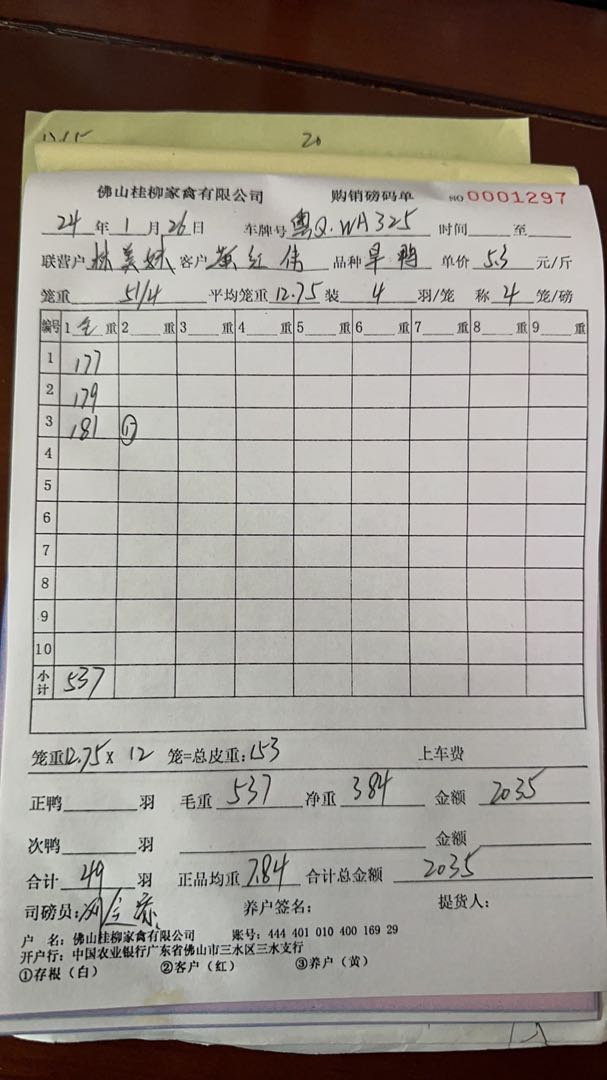 20
佛山桂柳家禽有限公司 购销磅码单 NO 0001297
24 年 1 月 26 日 车牌号 粤Q.WA325 时间 至
联营户 林美妹 客户 黄红伟 品种 旱鸭 单价 5.3 元/斤
笼重 51/4 平均笼重 12.75 装 4 羽/笼 称 4 笼/磅
编号 1 毛 重 2 重 3 重 4 重 5 重 6 重 7 重 8 重 9 重
1 177
2 179
3 181 ①
4
5
6
7
8
9
10
小计 537
笼重 12.75 x 12 笼=总皮重: 153 上车费
正鸭 羽 毛重 537 净重 384 金额 2035
次鸭 羽 金额
合计 49 羽 正品均重 7.84 合计总金额 2035
司磅员: 养户签名: 提货人:
户 名: 佛山桂柳家禽有限公司 账号: 444 401 010 400 169 29
开户行: 中国农业银行广东省佛山市三水区三水支行
①存根(白) ②客户(红) ③养户(黄)